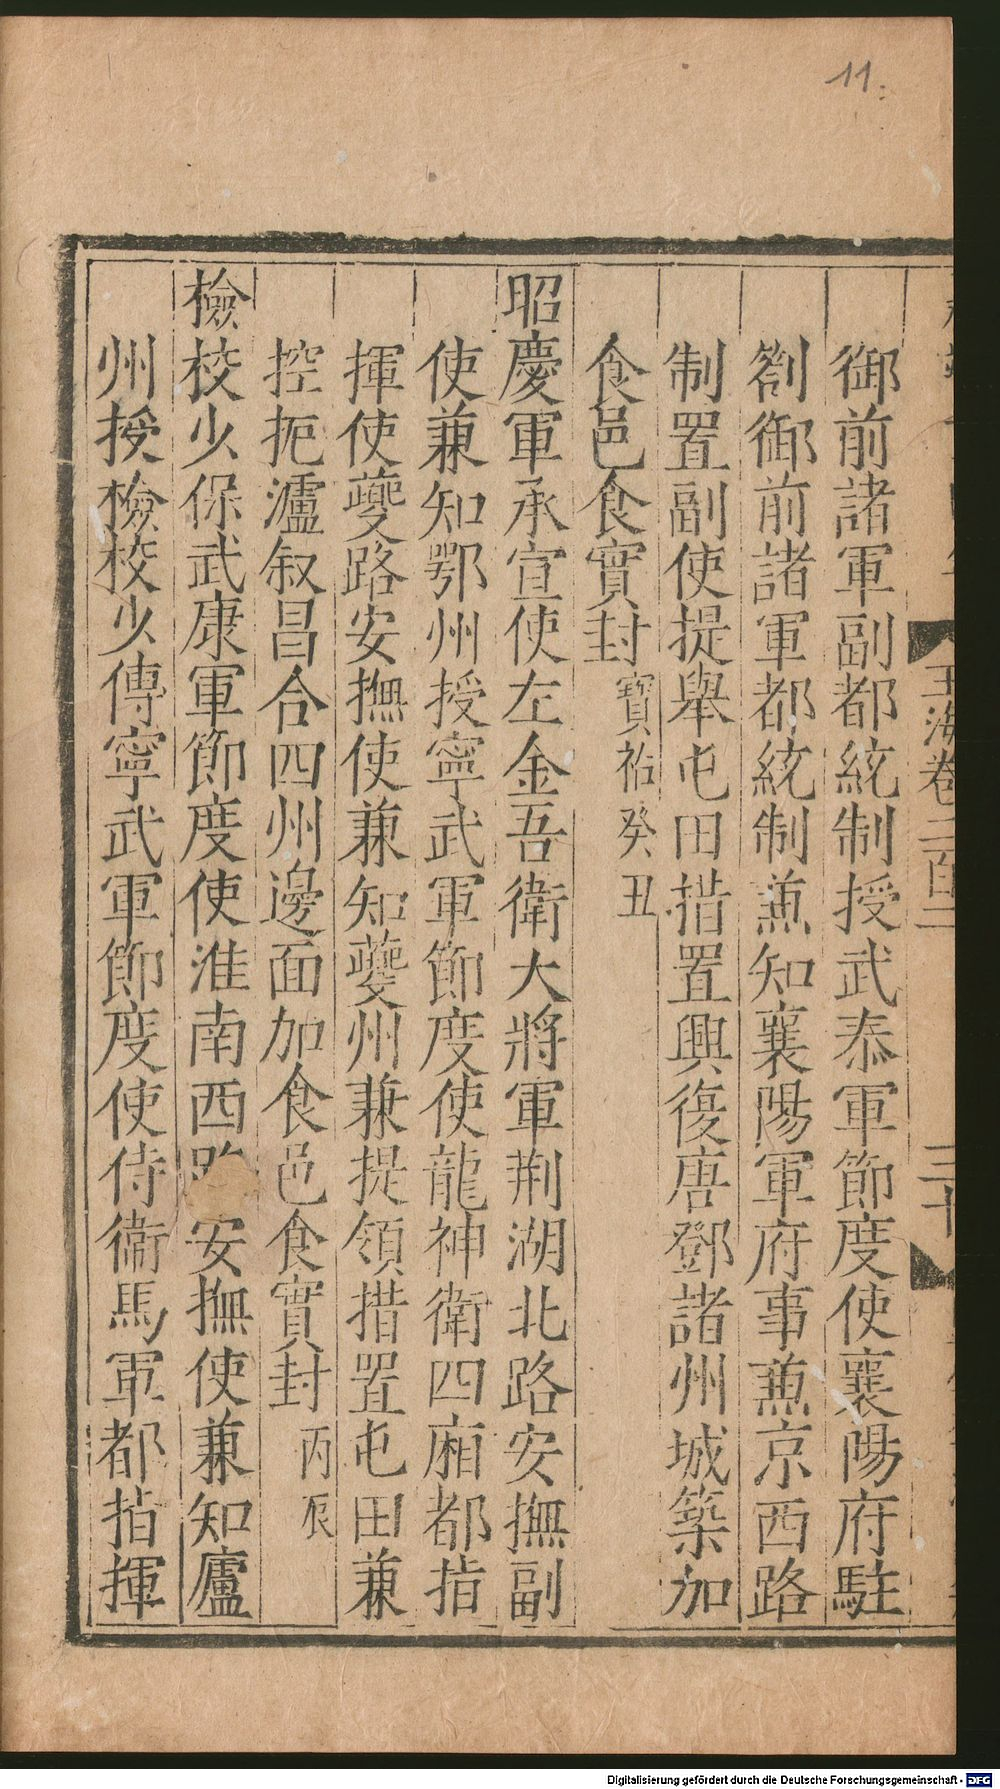 11.
玉海卷二百二
三十
御前諸軍副都統制授武泰軍節度使襄陽府駐
劄御前諸軍都統制兼知襄陽軍府事兼京西路
制置副使提舉屯田措置興復唐鄧諸州城築加
食邑食實封寶祐癸丑
昭慶軍承宣使左金吾衛大將軍荆湖北路安撫副
使兼知鄂州授寧武軍節度使龍神衛四廂都指
揮使夔路安撫使兼知夔州兼提領措置屯田兼
控扼瀘叙昌合四州邊面加食邑食實封丙辰
檢校少保武康軍節度使淮南西路安撫使兼知廬
州授檢校少傅寧武軍節度使侍衞馬軍都指揮
Digitalisierung gefördert durch die Deutsche Forschungsgemeinschaft - DFG